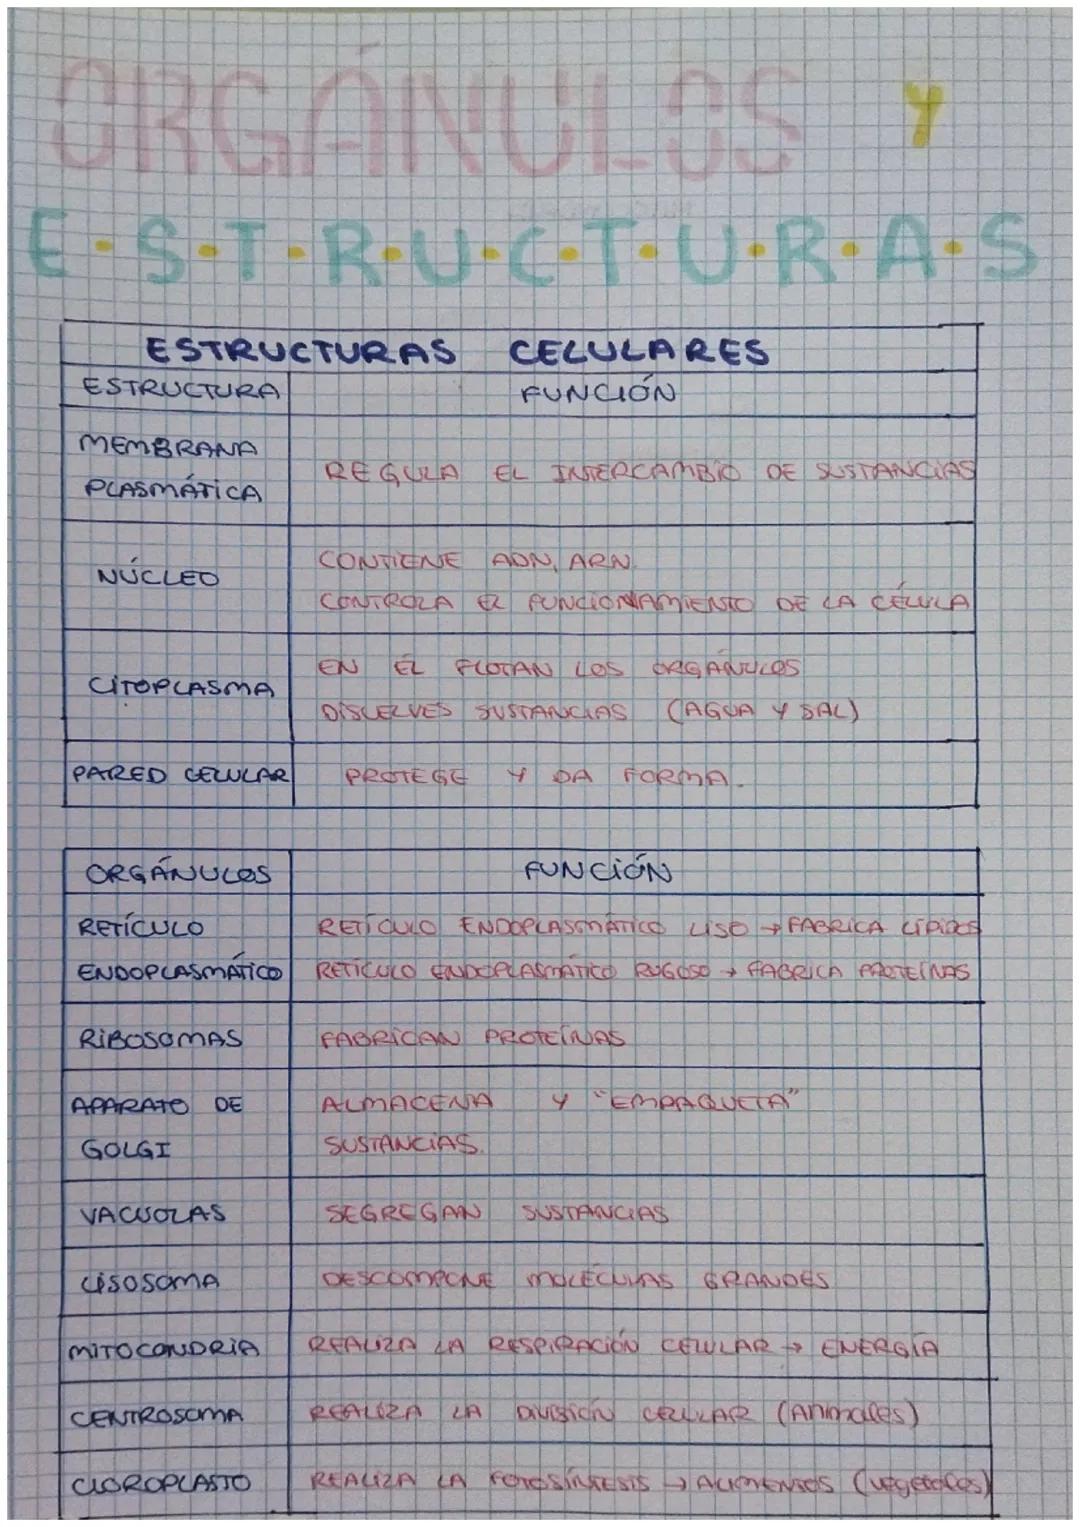 ORGÁNULOS Y
E·S·T·R·U·C·T·U·R·A·S
ESTRUCTURAS CELULARES
ESTRUCTURA FUNCIÓN
MEMBRANA
PLASMÁTICA
REGULA EL INTERCAMBIO DE SUSTANCIAS
NÚCLEO
CONTIENE ADN, ARN.
CONTROLA EL FUNCIONAMIENTO DE LA CÉLULA
CITOPLASMA
EN ÉL FLOTAN LOS ORGÁNULOS
DISUELVES SUSTANCIAS (AGUA Y SAL)
PARED CELULAR PROTEGE Y DA FORMA.
ORGÁNULOS FUNCIÓN
RETÍCULO
ENDOPLASMÁTICO
RETÍCULO ENDOPLASMÁTICO LISO → FABRICA LÍPIDOS
RETÍCULO ENDOPLASMÁTICO RUGOSO → FABRICA PROTEÍNAS
RIBOSOMAS FABRICAN PROTEÍNAS
APARATO DE
GOLGI
ALMACENA Y "EMPAQUETA"
SUSTANCIAS.
VACUOLAS SEGREGAN SUSTANCIAS
LISOSOMA DESCOMPONE MOLÉCULAS GRANDES
MITOCONDRIA REALIZA LA RESPIRACIÓN CELULAR → ENERGÍA
CENTROSOMA REALIZA LA DIVISIÓN CELULAR (Animales)
CLOROPLASTO REALIZA LA FOTOSÍNTESIS → ALIMENTOS (vegetales)